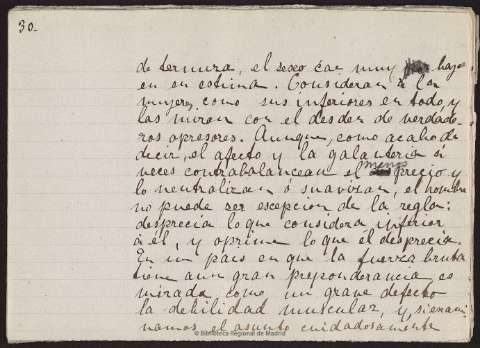 30.
de ternura, el sexo cae muy bajo
en su estima. Consideran á las
mujeres, como sus inferiores en todo, y
las miran con el desden de verdade-
ros opresores. Aunque, como acabo de
decir, el afecto y la galanteria á
veces contrabalancean el menosprecio y
lo neutralizan ó suavizan, el hombre
no puede ser escepcion de la regla:
desprecia lo que considera inferior
á él, y oprime lo que él desprecia.
En un pais en que la fuerza bruta
tiene aun gran preponderancia, es
mirada como un grave defecto
la debilidad muscular, y si exami
namos el asunto cuidadosamente
© Biblioteca Regional de Madrid